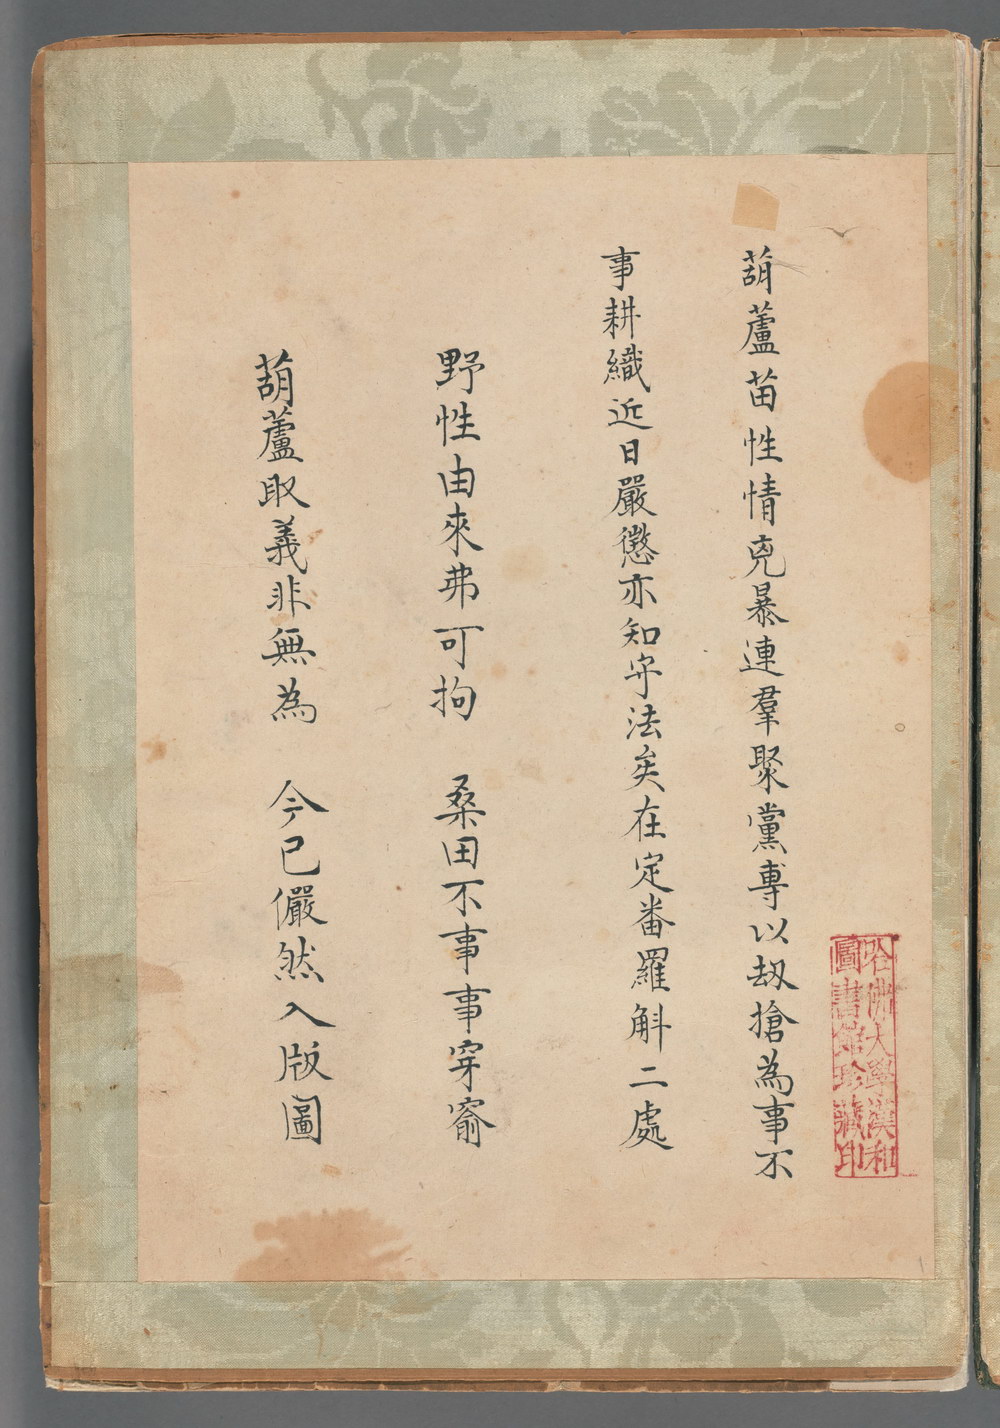 葫蘆苗性情兇暴連羣聚黨專以刼搶為事不
事耕織近日嚴懲亦知守法矣在定番羅斛二處
野性由來弗可拘　桑田不事事穿窬
葫蘆取義非無為　今已儼然入版圖
哈佛大學漢和
圖書館珍藏印